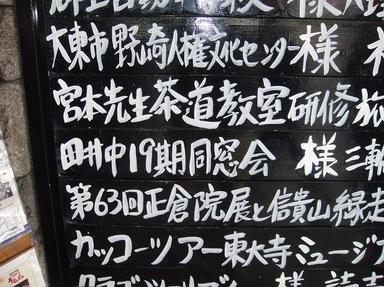 大東市野崎人権文化センター様
宮本先生茶道教室研修旅
田井中19期同窓会 様 三輪
第63回正倉院展と信貴山縁走
カッコーツアー東大寺ミュージア